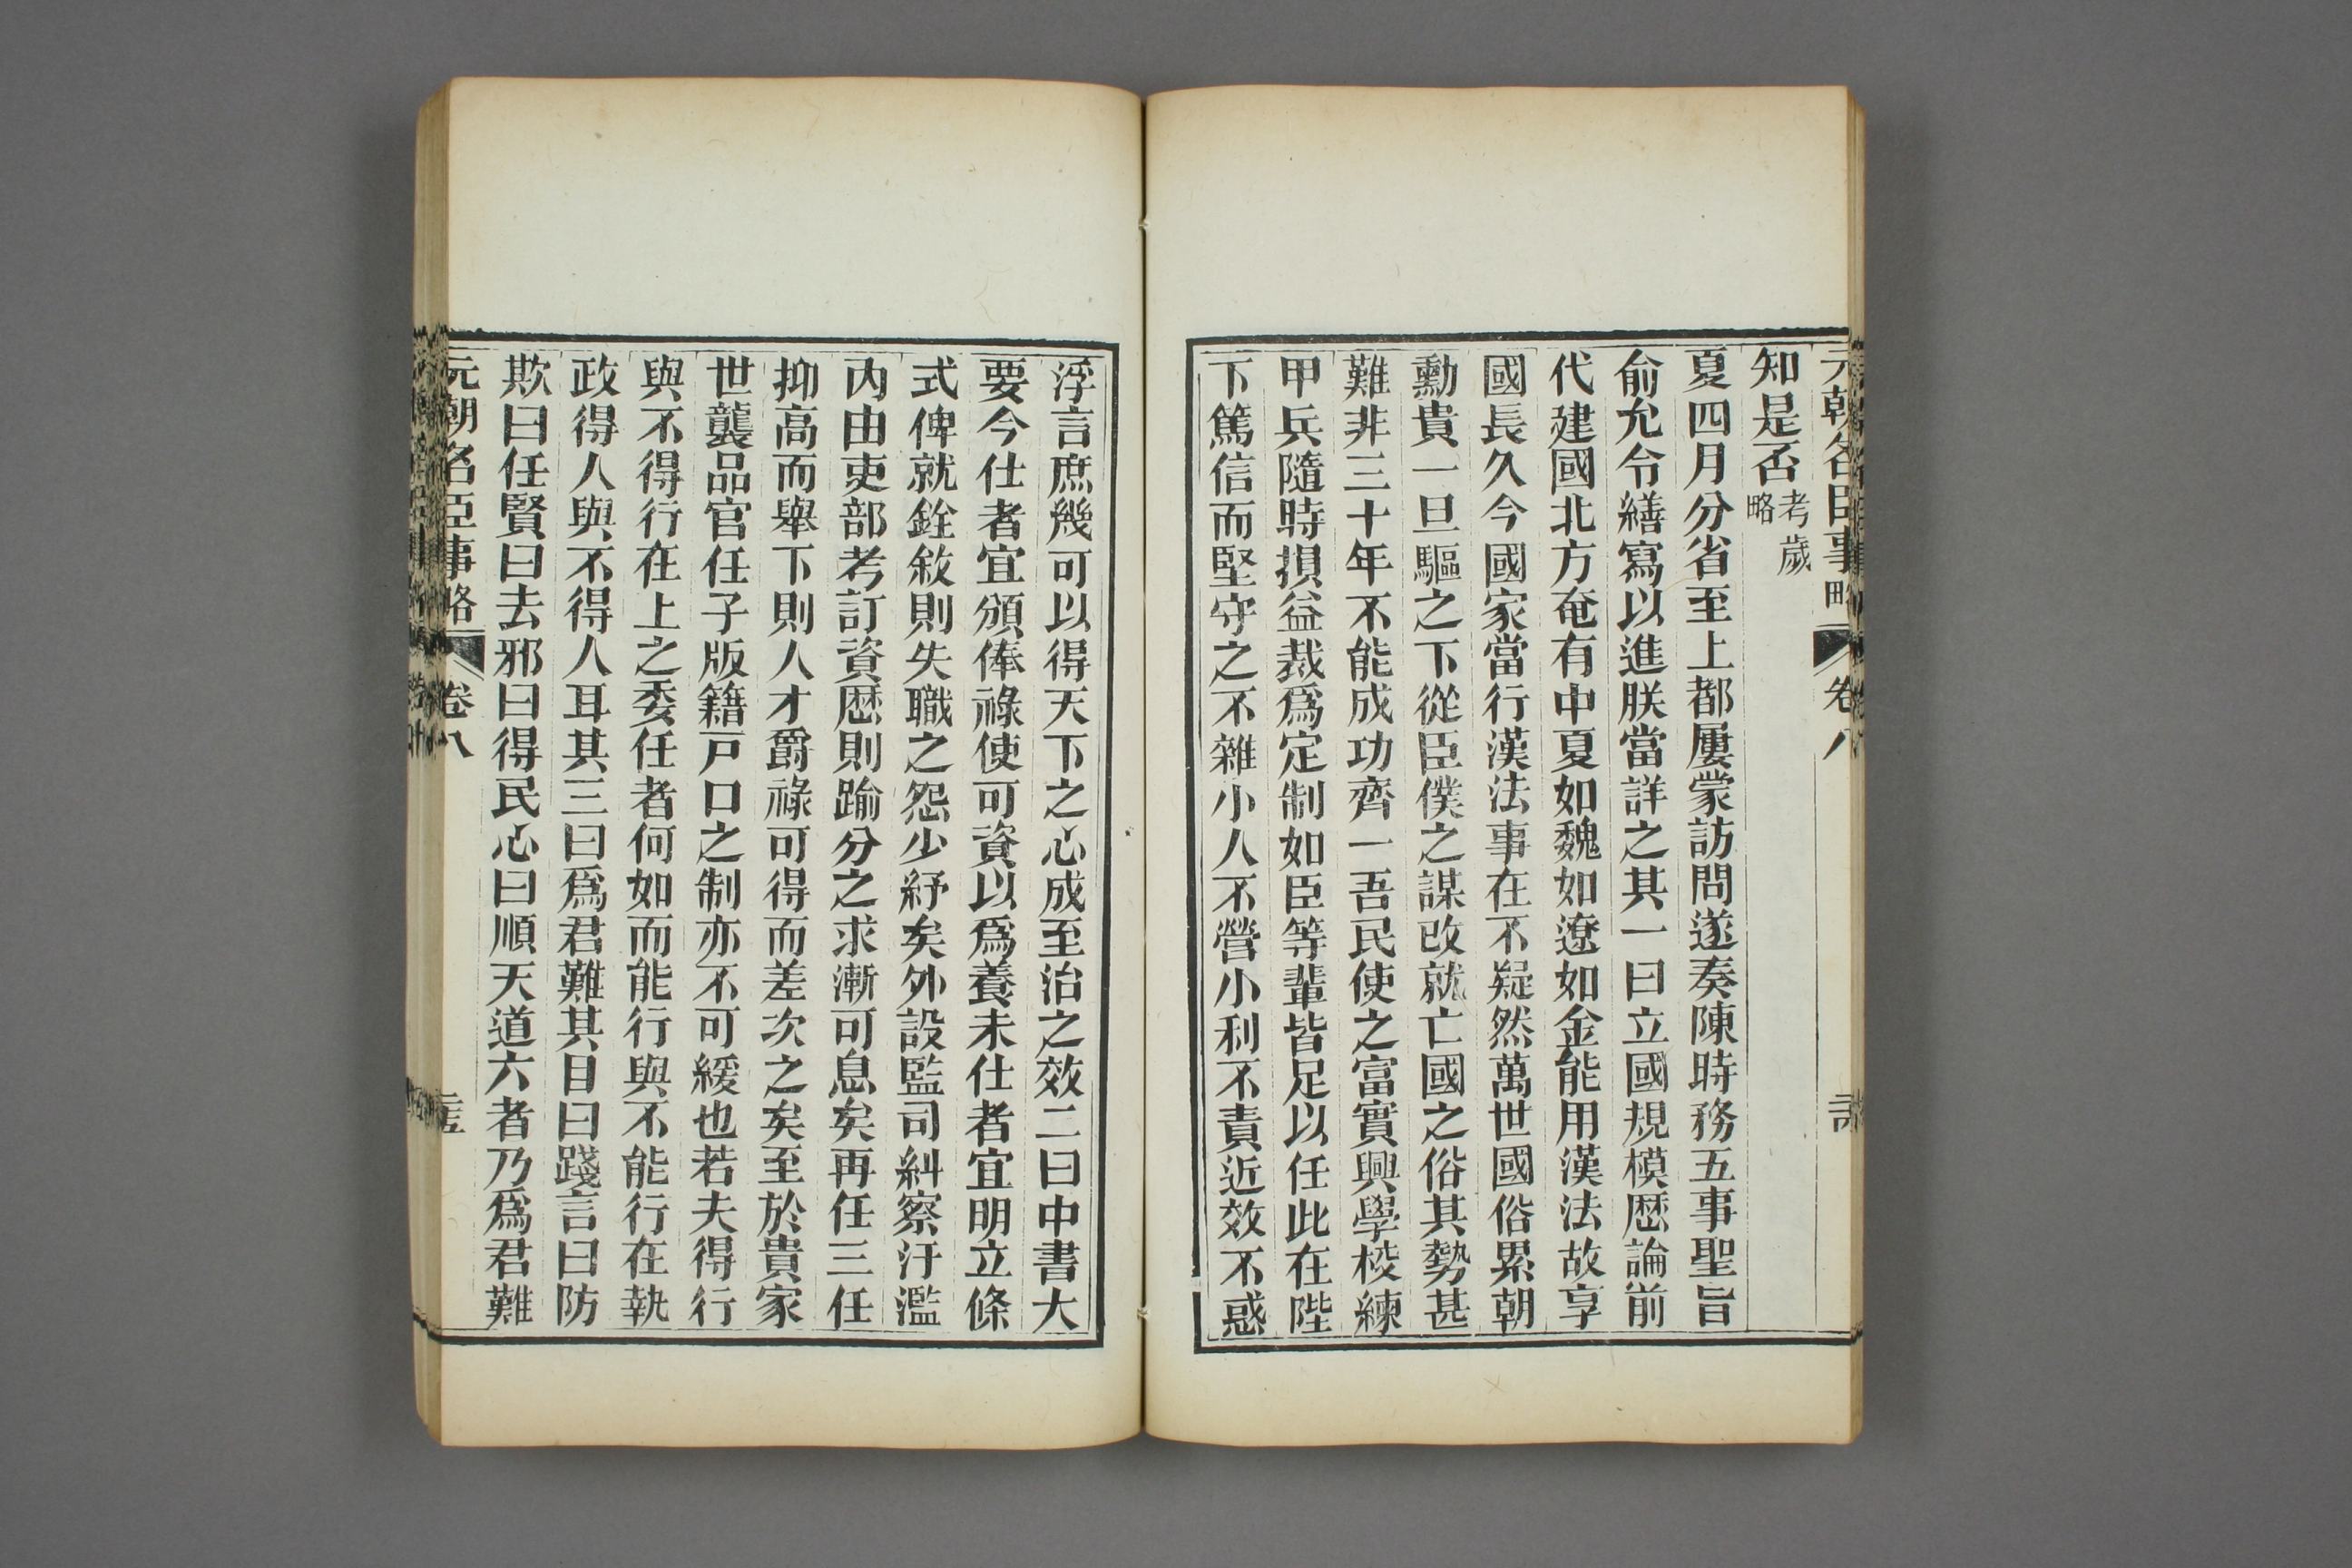 元朝名臣事略 卷八
知是否考歲略
夏四月分省至上都屢蒙訪問遂奏陳時務五事聖旨
俞允令繕寫以進朕當詳之其一曰立國規模歷論前
代建國北方奄有中夏如魏如遼如金能用漢法故享
國長久今國家當行漢法事在不疑然萬世國俗累朝
勳貴一旦驅之下從臣僕之謀改就亡國之俗其勢甚
難非三十年不能成功齊一吾民使之富實興學校練
甲兵隨時損益裁爲定制如臣等輩皆足以任此在陛
下篤信而堅守之不雜小人不營小利不責近效不惑
浮言庶幾可以得天下之心成至治之效二曰中書大
要今仕者宜頒俸祿使可資以爲養未仕者宜明立條
式俾就銓敘則失職之怨少紓矣外設監司糾察汙濫
內由吏部考訂資歷則踰分之求漸可息矣再任三任
抑高而舉下則人才爵祿可得而差次之矣至於貴家
世襲品官任子版籍戸口之制亦不可緩也若夫得行
與不得行在上之委任者何如而能行與不能行在執
政得人與不得人耳其三曰爲君難其目曰踐言曰防
欺曰任賢曰去邪曰得民心曰順天道六者乃爲君難
元朝名臣事略 卷八